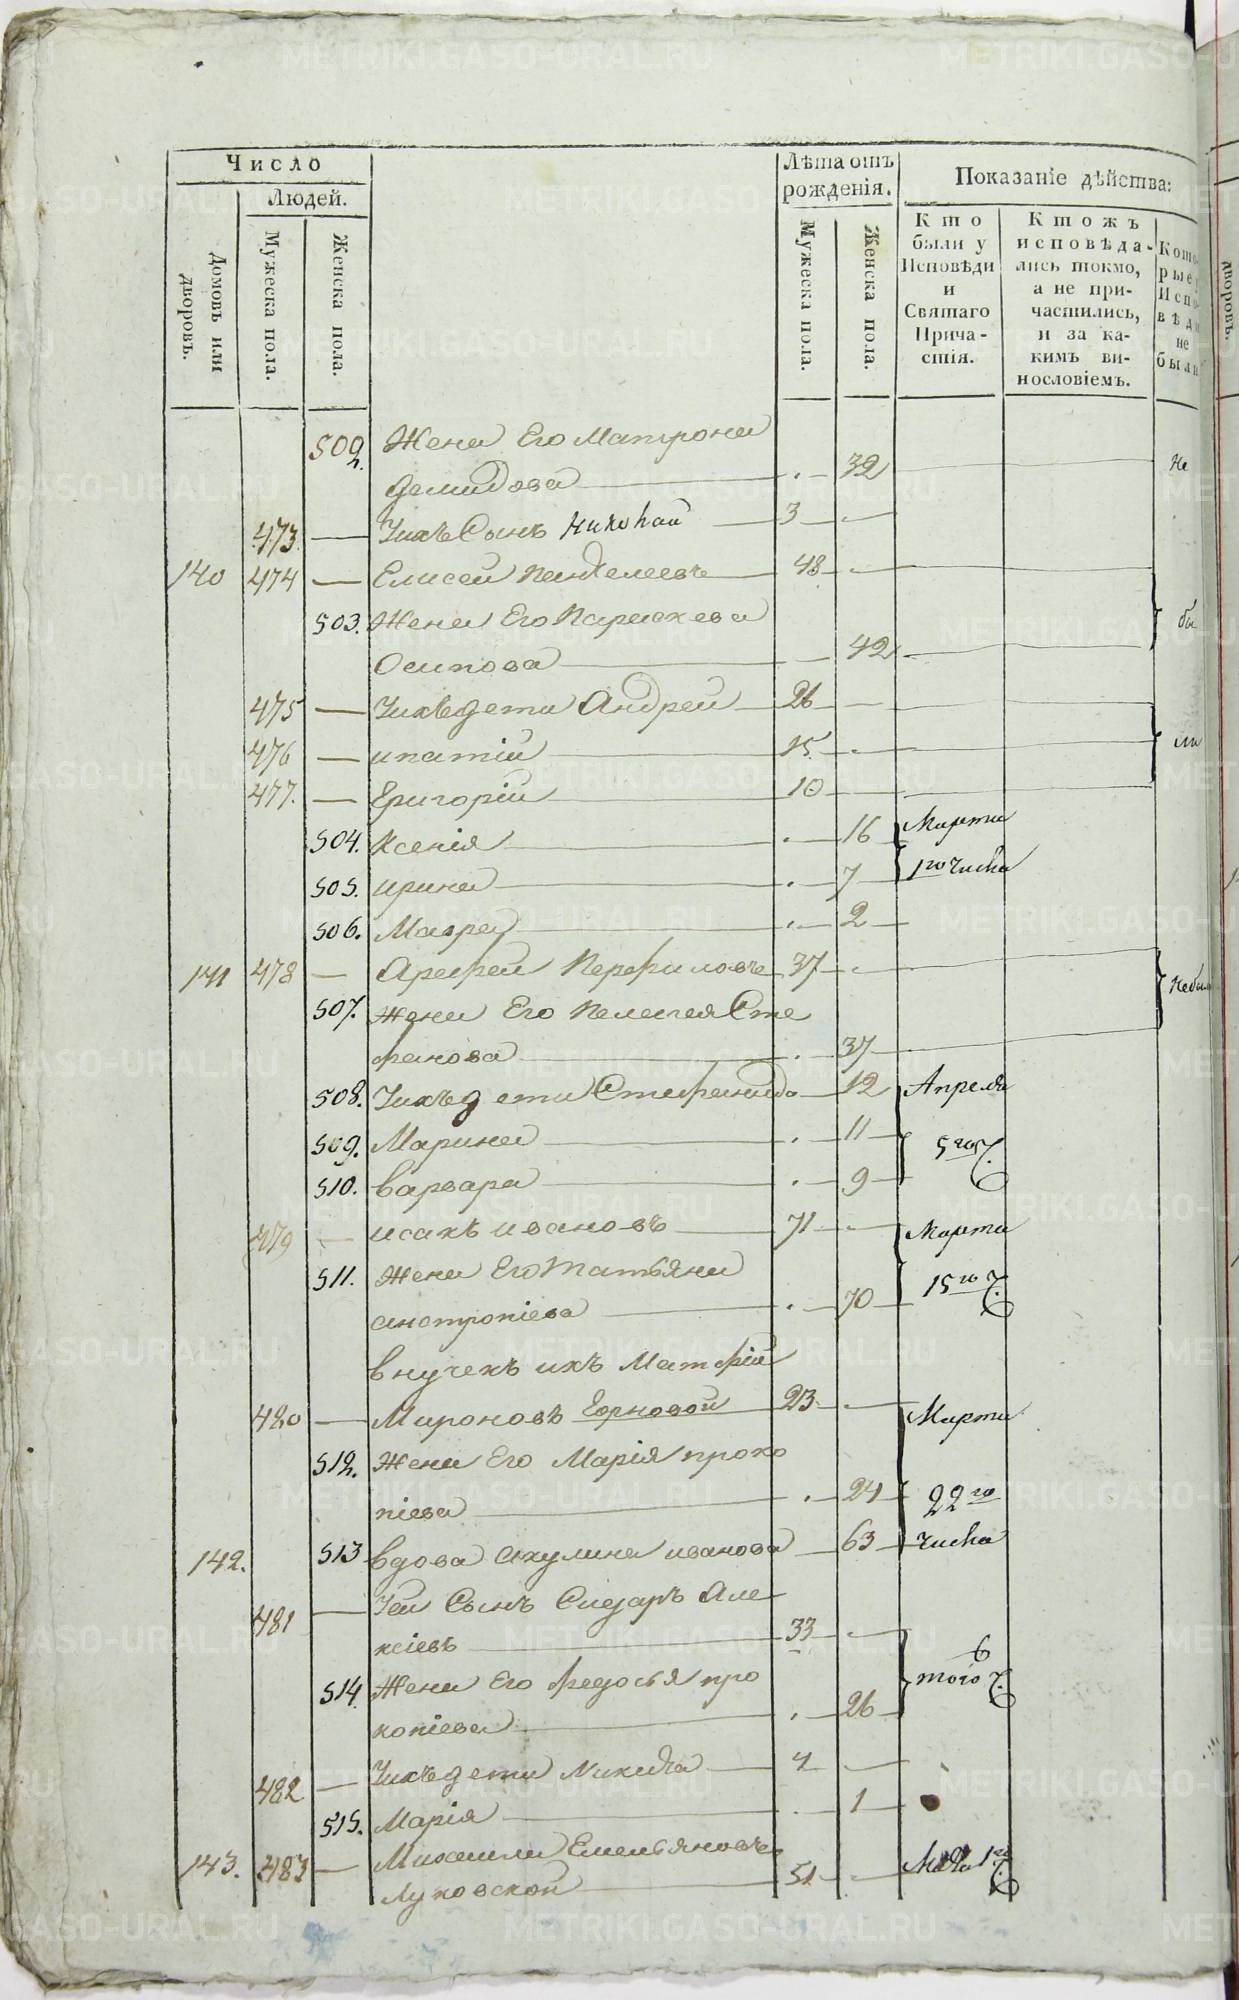 Число
Людей.
Домовъ или дворовъ.
Мужеска пола.
Женска пола.
Лѣта отъ рожденія.
Мужеска пола.
Женска пола.
Показаніе дѣйства:
Кто были у Исповѣди и Святаго Прича-стія.
Ктожъ исповѣда-лись токмо, а не при-частились, и за ка-кимъ ви-нословіемъ.
Кото-рые Испо-вѣди не были
502. Жена Его Матрона
Демидова . 32 Не
473. Ихъ Сынъ Николай 3
140 474 Елисей Пантелеевъ 48
503. Жена Его Параскева бы
Осипова 42
475 Ихъ дети Андрей 26
476 ипатій 15 ли
477. Григорій 10
504. Ксенія . 16 Марта
505. ирина . 7 1го числа
506. Мавра . 2
141 478 Арефей Перфиловъ 37 Небыли
507. Жена Его Пелагея Сте
фанова . 37
508. Ихъ дети Стефанида 12 Апреля
509. Марина . 11 5го ч.
510. варвара . 9
479 исакъ ивановъ 71 Марта
511. Жена Его Татьяна 15го ч.
антропіева . 70
внучекъ ихъ Матфій
480 Мироновъ 23 Марта
512. Жена Его Марія проко
піева . 24 22го
142. 513 вдова акулина иванова 63 числа
481 Ей Сынъ Сидаръ Але
ксіевъ 33
514 Жена Его федосья про 6 того ч.
копіева . 26
482 Ихъ дети Никита 4
515. Марія . 1
143. 483 Михаила Емельяновъ
Луковской 51 1го ч.